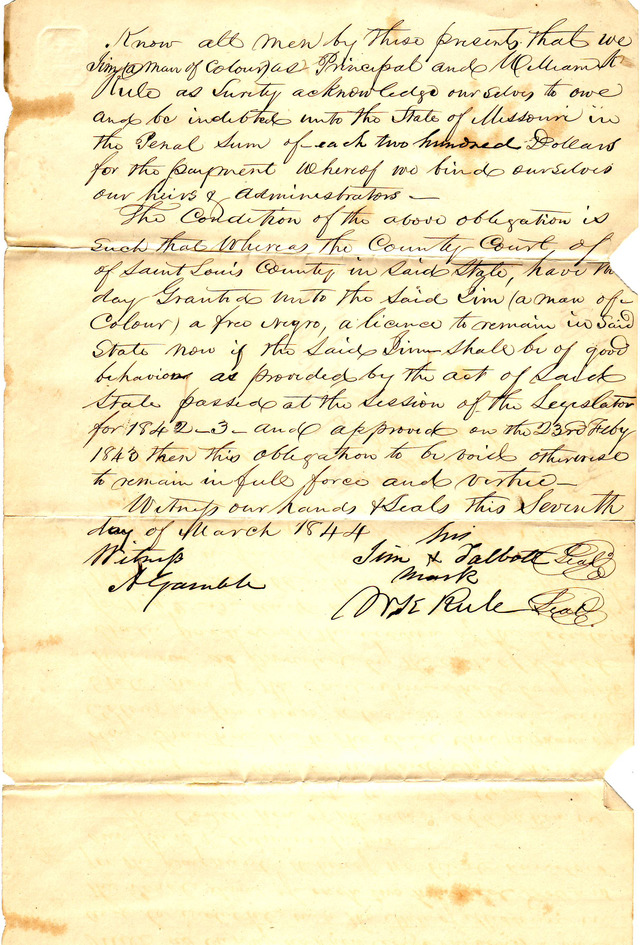 Know all men by these presents, that we
Jim (a man of Colour) as Principal and William K
Rule as surity acknowledge ourselves to owe
and be indebted unto the State of Missouri in
the Penal Sum of each two hundred Dollars
for the payment whereof we bind ourselves
our heirs & administrators —
The Condition of the above obligation is
such that whereas the County Court of
of Saint Louis County in said State, have this
day Granted unto the said Jim (a man of
Colour) a free Negro, a licence to remain in said
State now if the said Jim shall be of good
behavior as provided by the act of said
State passed at the session of the Legislator
for 1842–3 – and approved on the 23rd Feby
1843 then this obligation to be void otherwise
to remain in full force and virtue —
Witness our hands & Seals this Seventh
day of March 1844
his
Witness Jim X Talbott Seal
AGamble mark
Wm K Rule Seal